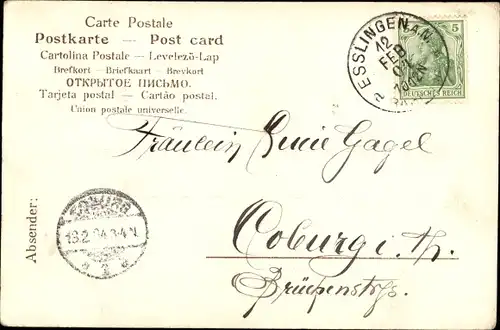 Carte Postale
Postkarte — Post card
Cartolina Postale — Levelező-Lap
Brefkort — Briefkaart — Brevkort
ОТКРЫТОЕ ПИСЬМО.
Tarjeta postal — Cartão postal.
Union postale universelle.
ESSLINGEN A.N.
12
FEB
04
5
DEUTSCHES REICH
Fräulein Lucie Gagel
Coburg i. Th.
Absender:
COBURG
13.2.04. 3-4 N